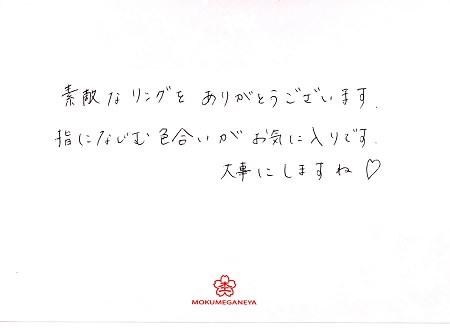 素敵なリングを ありがとうございます.
指になじむ色合いが お気に入りです.
大事にしますね♡
MOKUMEGANEYA